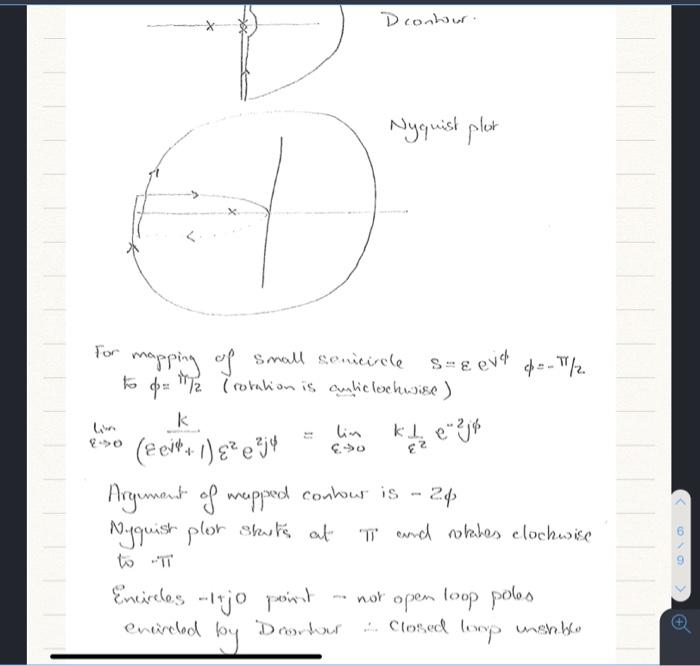 D contour.
Nyquist plot
For mapping of small semicircle s = ε e^jϕ ϕ = -π/2
to ϕ = π/2 (rotation is anticlockwise)
lim ε→0 k / ((ε e^jϕ + 1) ε² e^2jϕ) = lim ε→0 k 1/ε² e^-2jϕ
Argument of mapped contour is - 2ϕ
Nyquist plot starts at π and rotates clockwise
to -π
Encircles -1+j0 point - not open loop poles
encircled by D contour ∴ Closed loop unstable
6
/
9